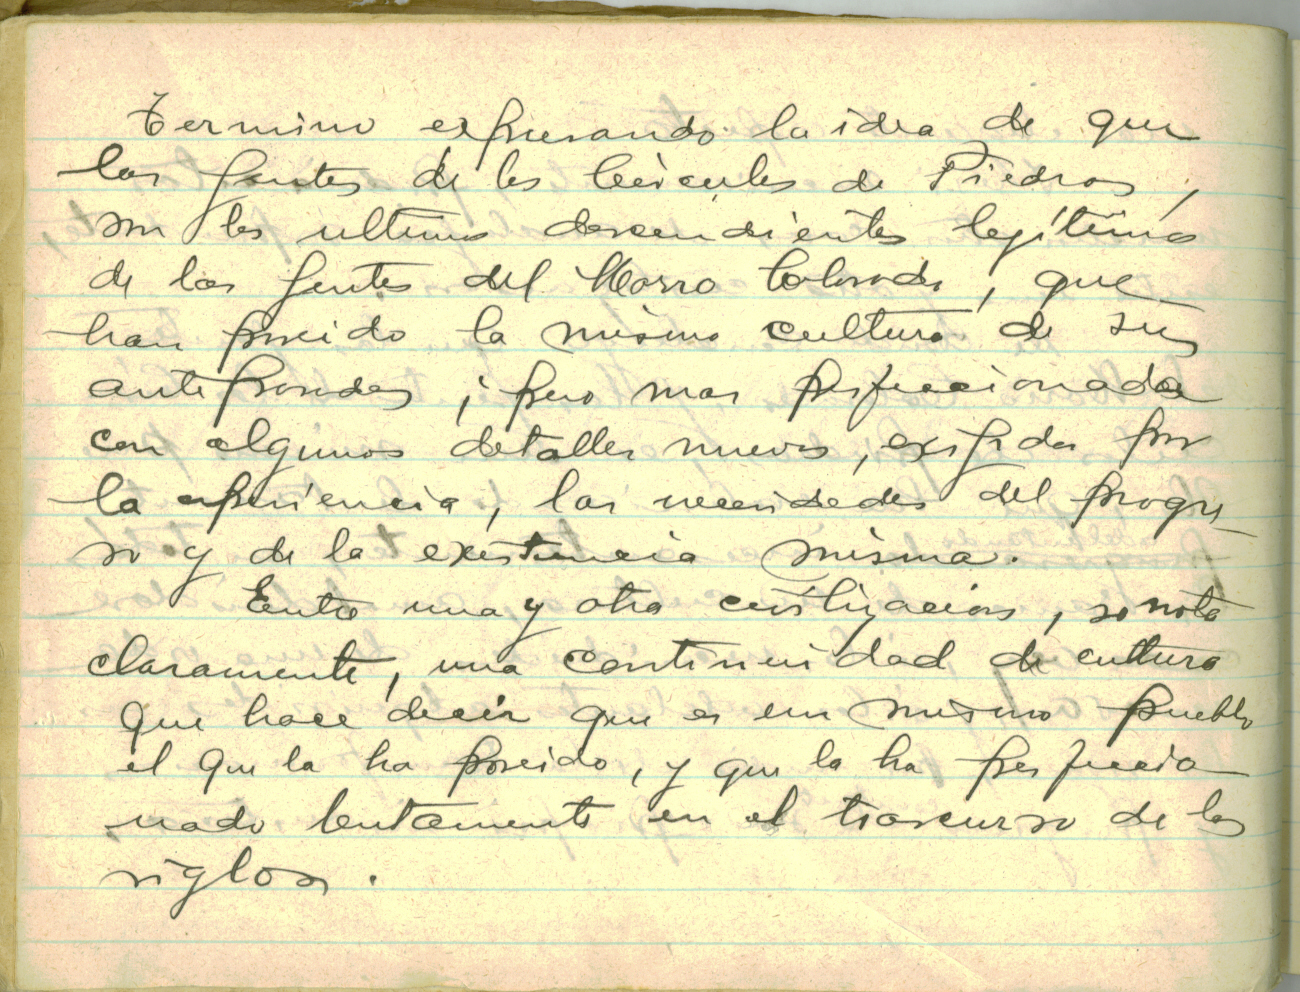 Termino expresando la idea de que
las gentes de los Círculos de Piedras,
son los ultimos descendientes legítimos
de las gentes del Morro Colorado, que
han poseido la misma cultura de sus
antepasados; pero mas perfeccionada
con algunos detalles nuevos, exigidos por
la experiencia, las necesidades del progre
so y de la existencia misma.
Entre una y otra civilización, se nota
claramente, una continuidad de cultura
que hace decir que es un mismo pueblo
el que la ha poseido, y que la ha perfeccio
nado lentamente en el trascurso de los
siglos.